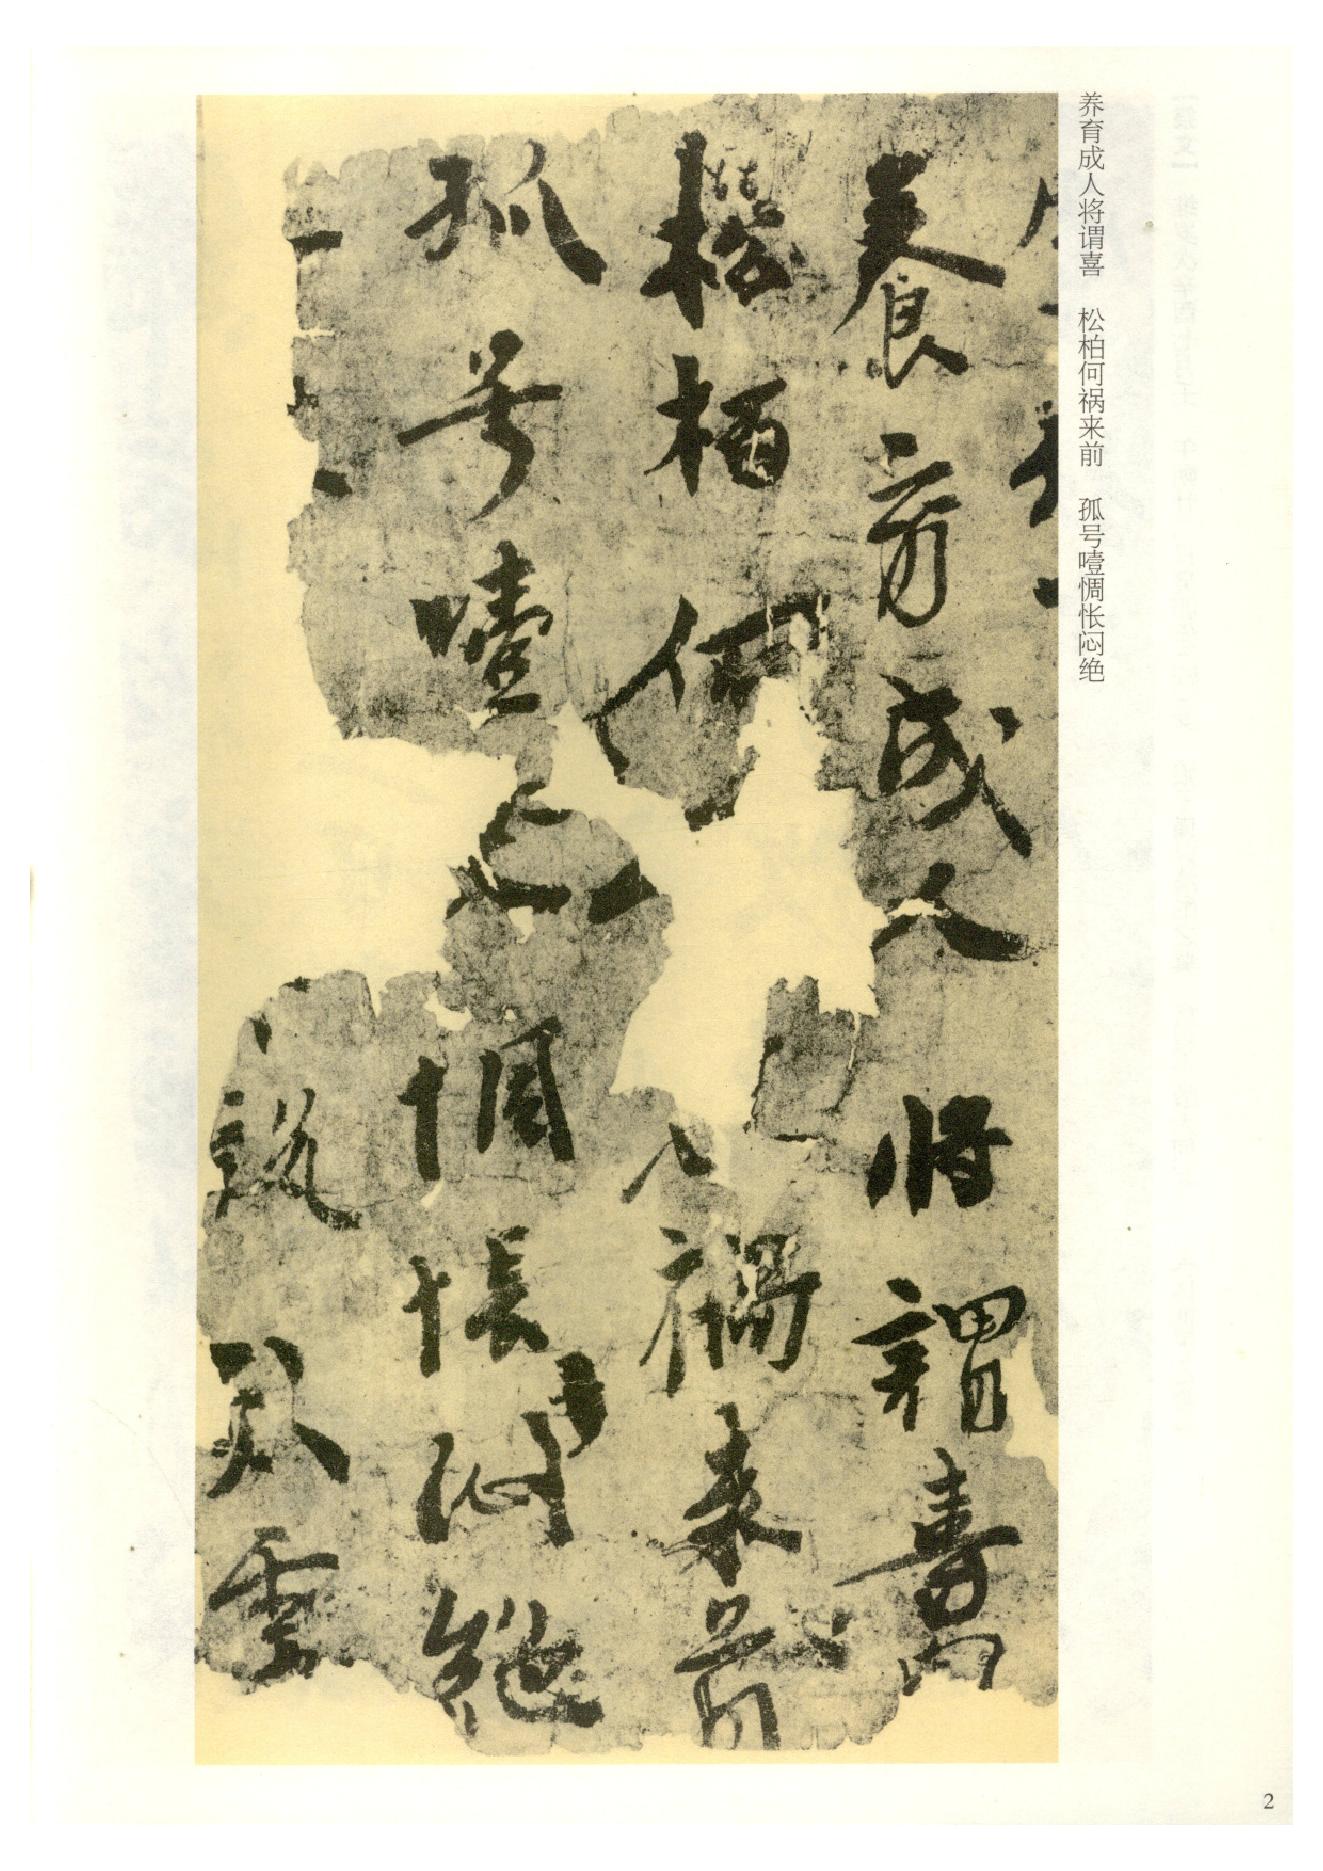 养育成人将谓喜　松柏何祸来前　孤号噎惆怅闷绝
養育成人將謂
松栢何禍来前
孤号噎惆悵悶絕
2